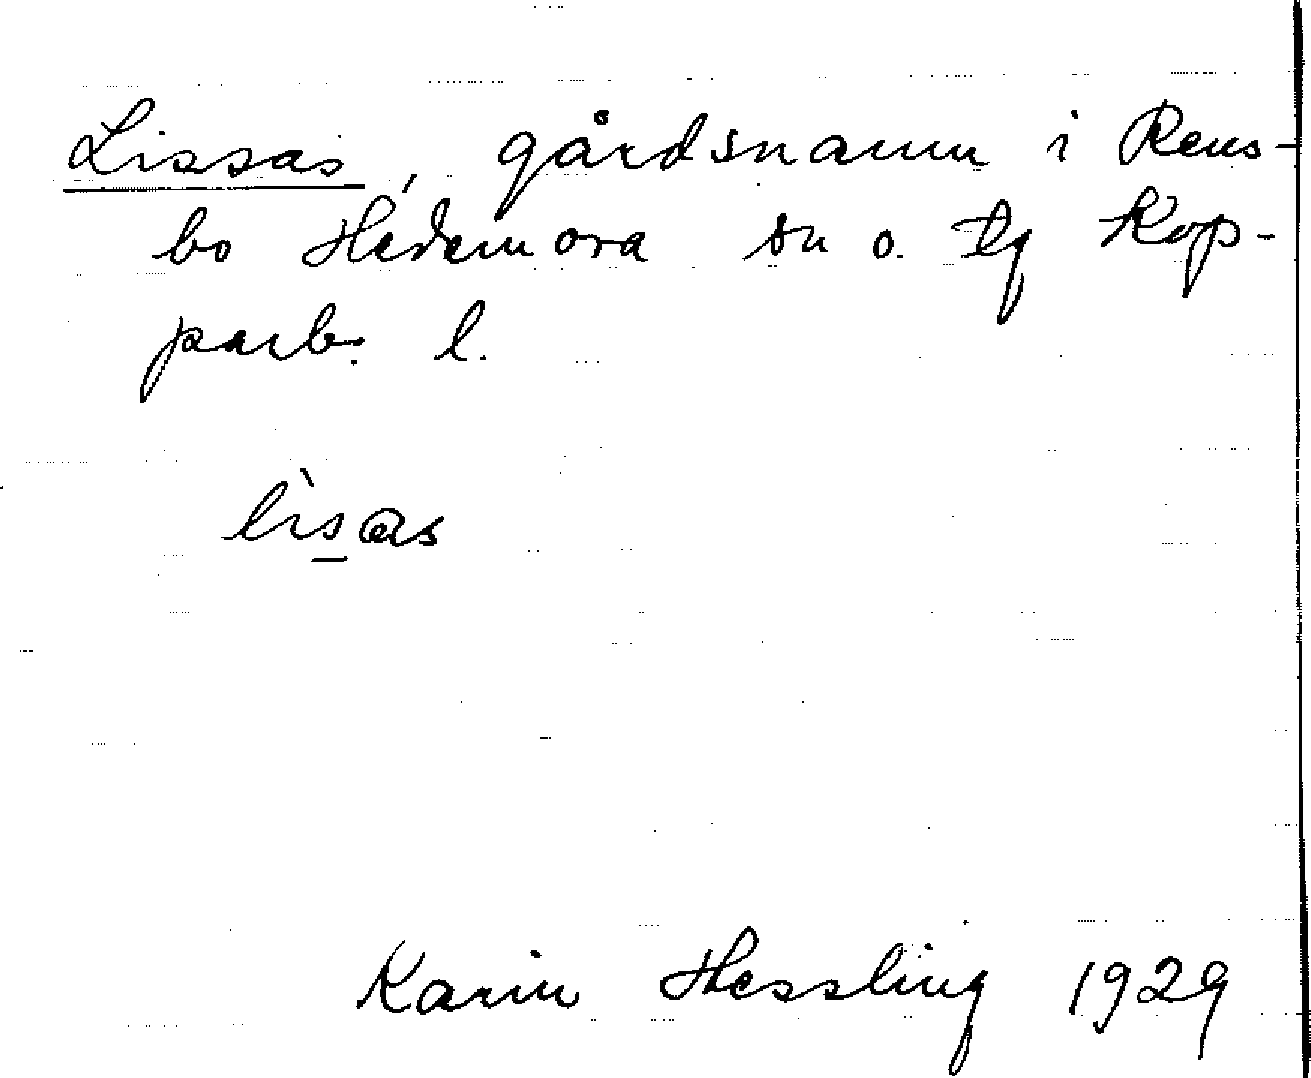 Lissas, gårdsnamn i Rens-
bo Hedemora sn o. tg Kop-
parb. l.
lìsas
Karin Hessling 1929